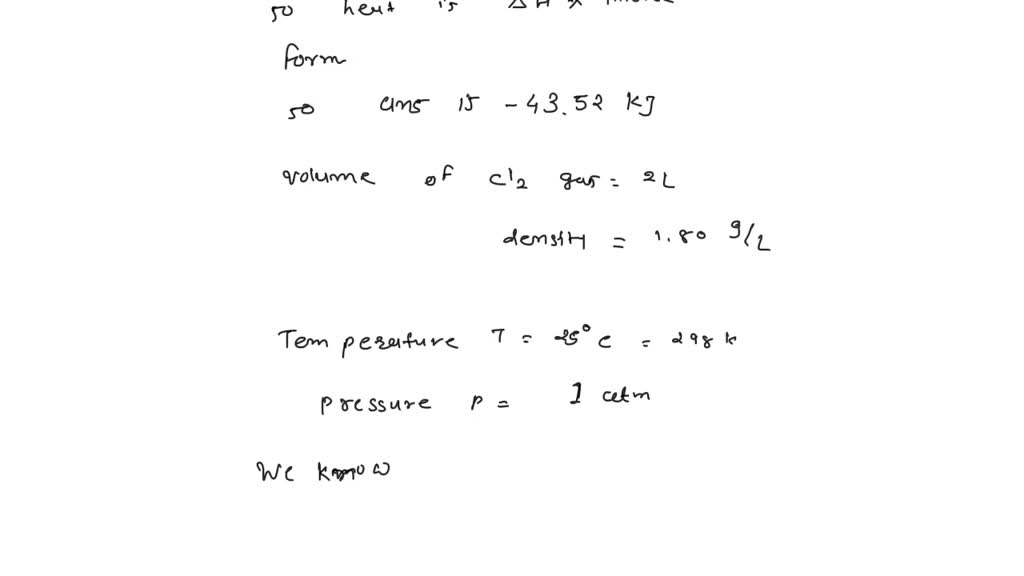 so heat is ΔH x
form
so ans is - 43.52 kJ
volume of cl2 gas = 2L
density = 1.80 g/L
Temperature T = 25° C = 298 k
pressure P = 1 atm
We know